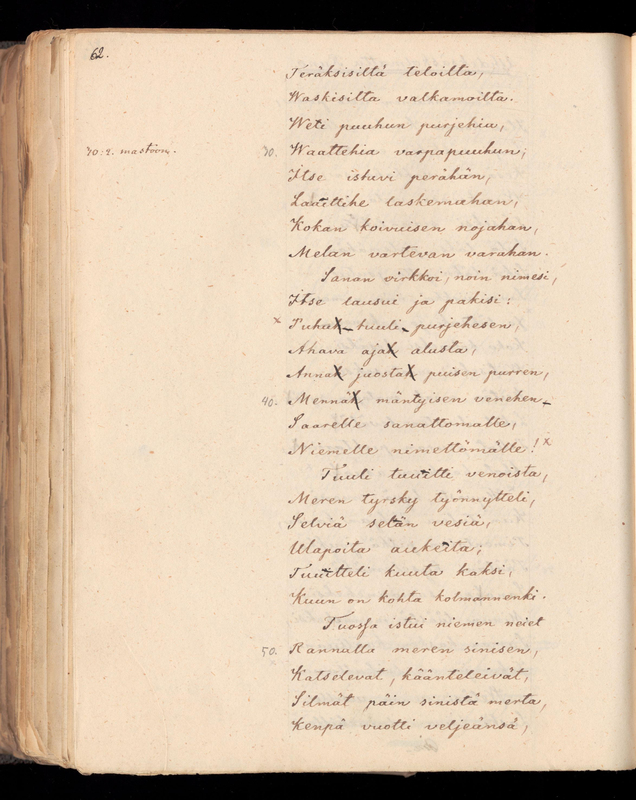 62.
Teräksisiltä teloilta,
Waskisilta valkamoilta.
Weti puuhun purjehia,
30:2. mastoon.
30. Waattehia varpapuuhun;
Itse istuvi perähän,
Laaittihe laskemahan,
Kokan koivuisen nojahan,
Melan vartevan varahan.
Sanan virkkoi, noin nimesi,
Itse lausui ja pakisi:
x Puhu tuuli purjehesen,
Ahava aja alusta,
Anna juosta puisen purren,
40. Mennä mäntyisen venehen
Saarelle sanattomalle,
Niemelle nimettömälle! x
Tuuli tuuitti venoista,
Meren tyrsky työnnytteli,
Selviä selän vesiä,
Ulapoita aukeita;
Tuuitteli kuuta kaksi,
Kuun on kohta kolmannenki.
Tuossa istui niemen neiet
50. Rannalla meren sinisen,
Katselevat, kääntelevät,
Silmät päin sinistä merta,
Kenpä vuotti veljeänsä,